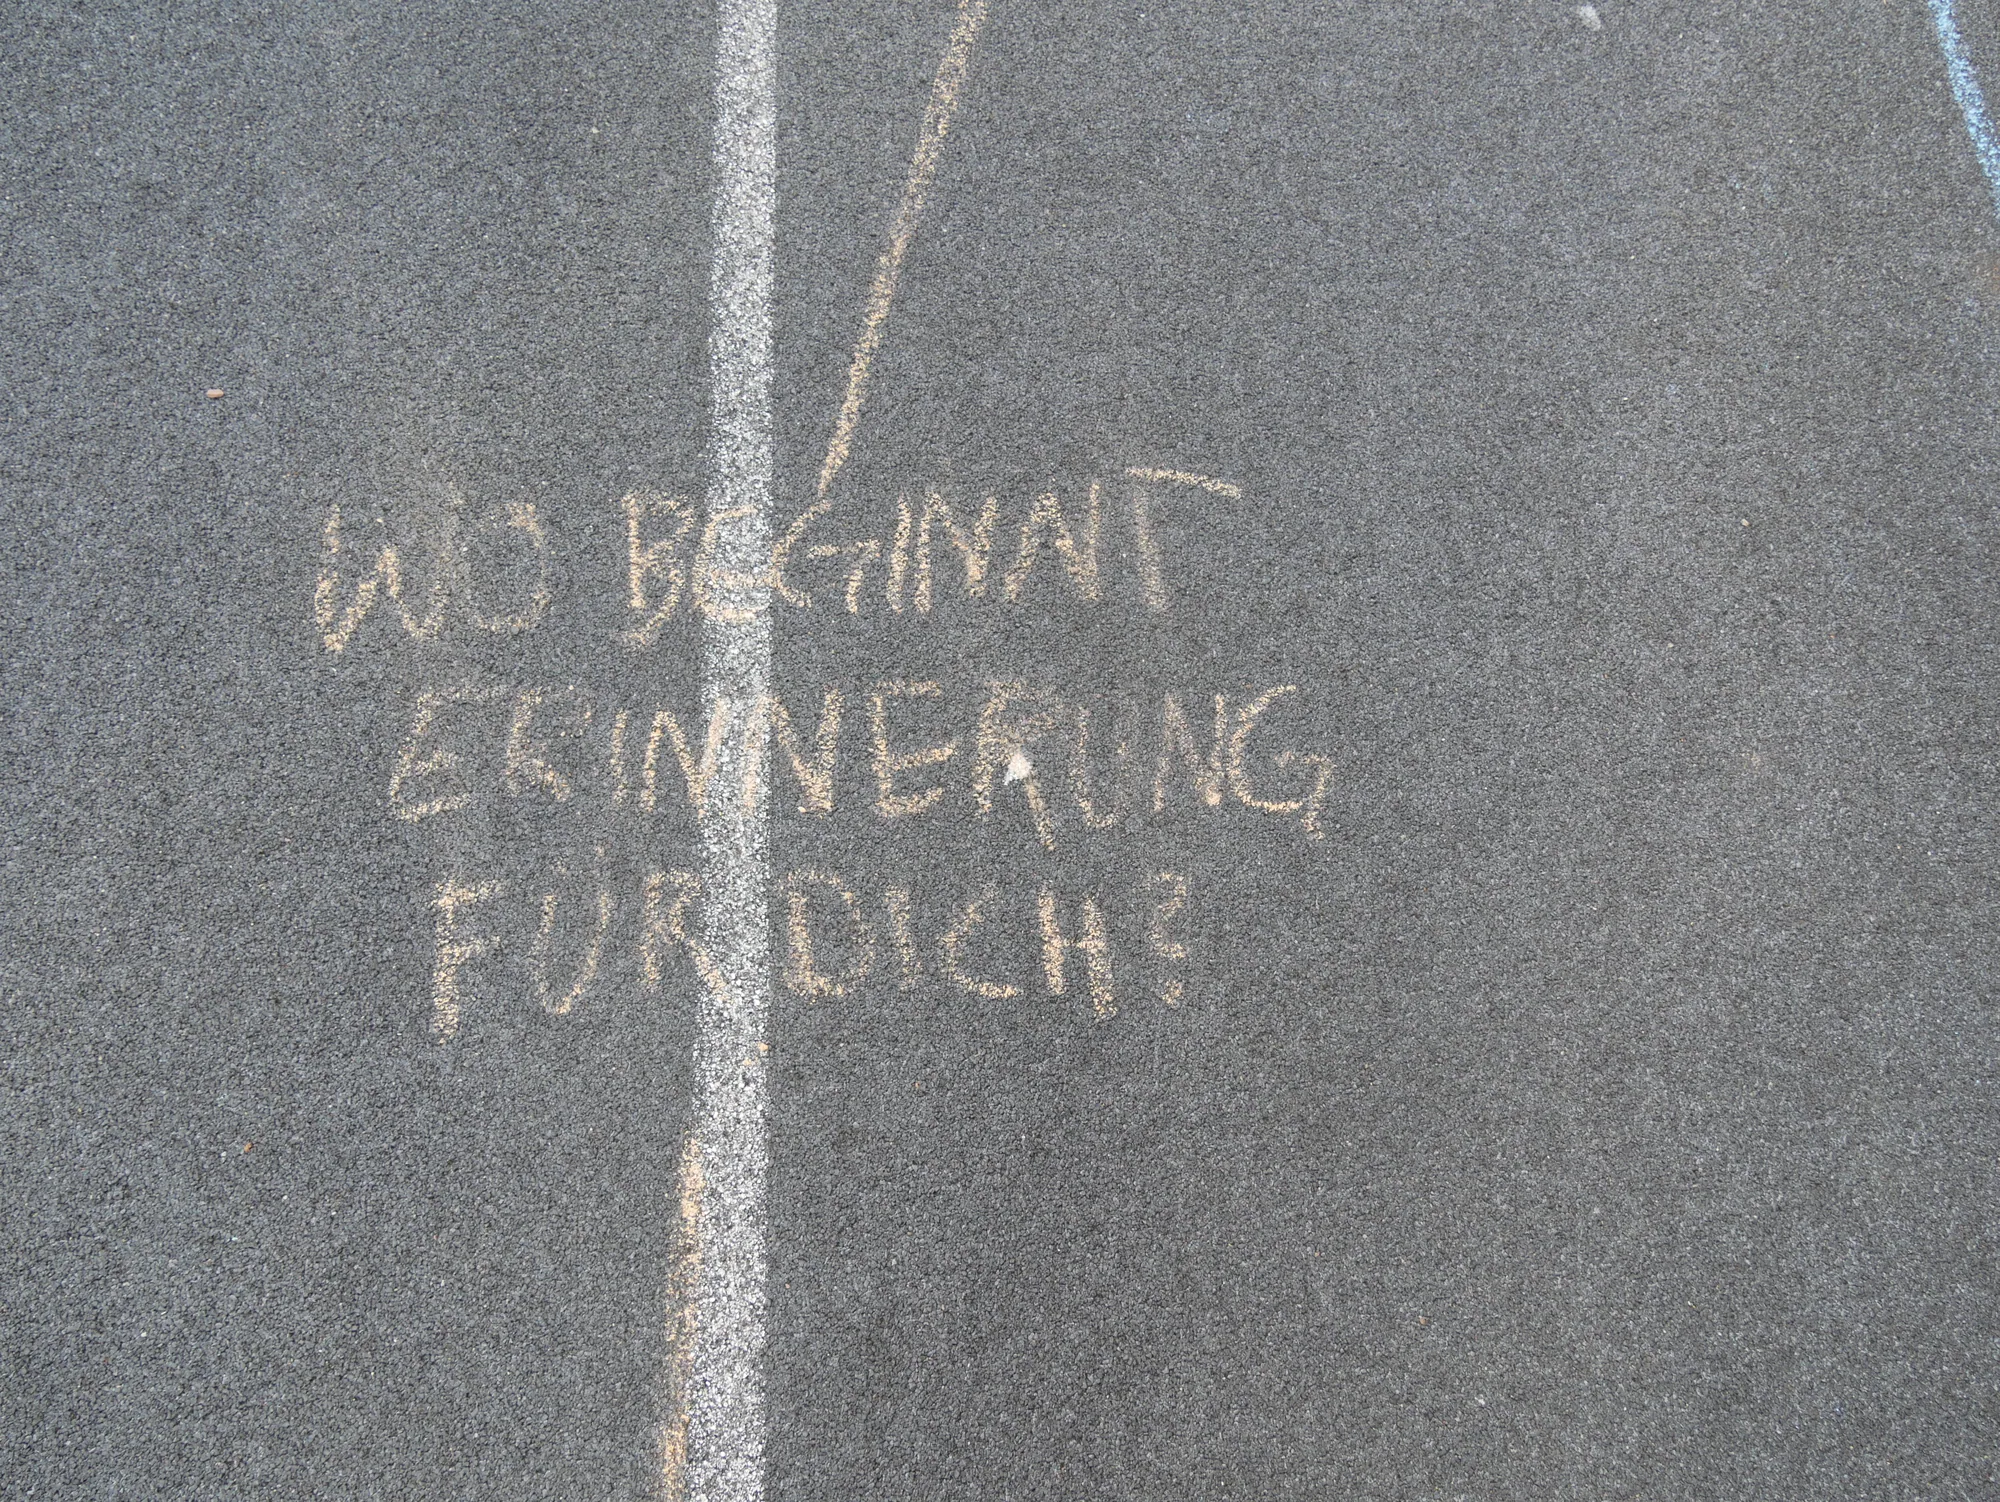 WO BEGINNT
ERINNERUNG
FÜR DICH?